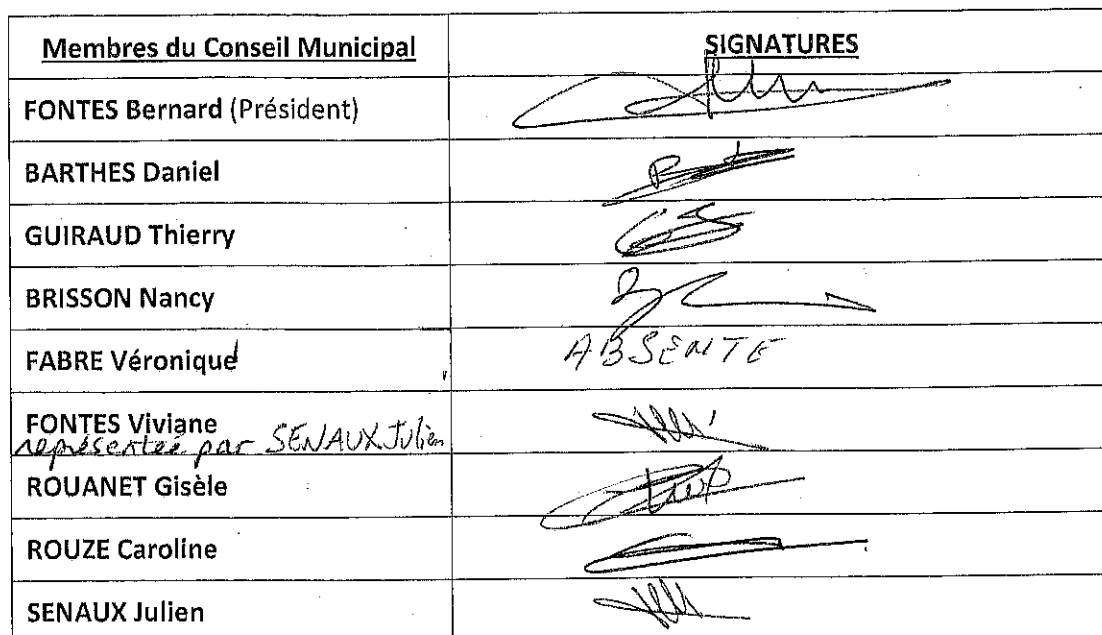 Membres du Conseil Municipal SIGNATURES
FONTES Bernard (Président)
BARTHES Daniel
GUIRAUD Thierry
BRISSON Nancy
FABRE Véronique ABSENTE
FONTES Viviane
représentée par SENAUX Julien
ROUANET Gisèle
ROUZE Caroline
SENAUX Julien